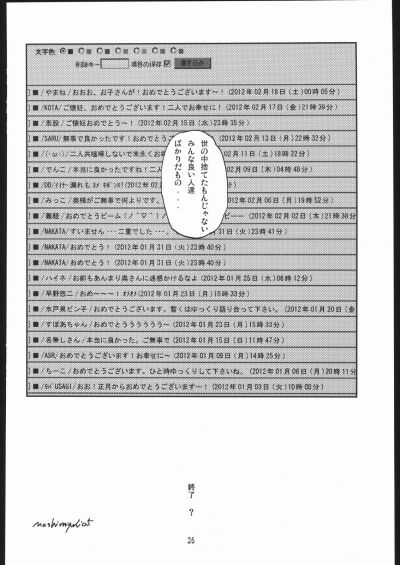 文字色 ◉■ ○■ ○■ ○■ ○■ ○■
削除キー 項目の保存 書き込み
] ■ /やまね/おおお、お子さんが！おめでとうございます～！(2012年02月18日(土)00時05分)
] ■ /KOTA/ご懐妊、おめでとうございます！二人でお幸せに！(2012年02月17日(金)21時39分)
] ■ /ご懐妊おめでとう～！(2012年02月15日(水)23時35分)
] ■ /SARU/無事で良かったです！おめでとう 2年02月13日(月)22時32分)
] ■ /(･ω･)/二人共喧嘩しないで末永くお 02月11日(土)18時22分)
] ■ /でんこ/本当に良かったですね！おめ 2月09日(木)04時48分)
] ■ /DD/
] ■ /みっこ/奥様がご無事で何よりです。 日(木)19時52分)
] ■ /義経/おめでとうビーム(ノ゜▽゜)ノ ビーー(2012年02月02日(木)21時38分
] ■ /NAKATA/すいません･･･二重でした･･･。 31日(火)23時41分)
] ■ /NAKATA/おめでとう！(2012年01月31日(火)23時40分)
] ■ /NAKATA/おめでとう！(2012年01月31日(火)23時40分)
] ■ /ハイネ/お前もあんまり奥さんに迷惑かけるなよ(2012年01月25日(水)06時12分)
] ■ /早野悠二/おめ～～～！(2012年01月23日(月)15時33分)
] ■ /水戸泉ピン子/おめでとうございます。暫くはゆっくり語り合って下さい。(2012年01月20日(金
] ■ /すぽあちゃん/おめでとううううううう～(2012年01月23日(月)15時33分)
] ■ /名無しさん/本当に良かった。ご無事で(2012年01月15日(日)11時47分)
] ■ /ASR/おめでとうございます！お幸せに～(2012年01月09日(月)14時25分)
] ■ /ちーこ/おめでとうございます。ひと時ゆっくりして下さいね。(2012年01月06日(月)20時11分
] ■ USAGI/おお！正月からおめでとうございますー！(2012年01月03日(火)10時03分)
世の中捨てたもんじゃない
みんな良い人達
ばかりだもの・・・・
終了？
26